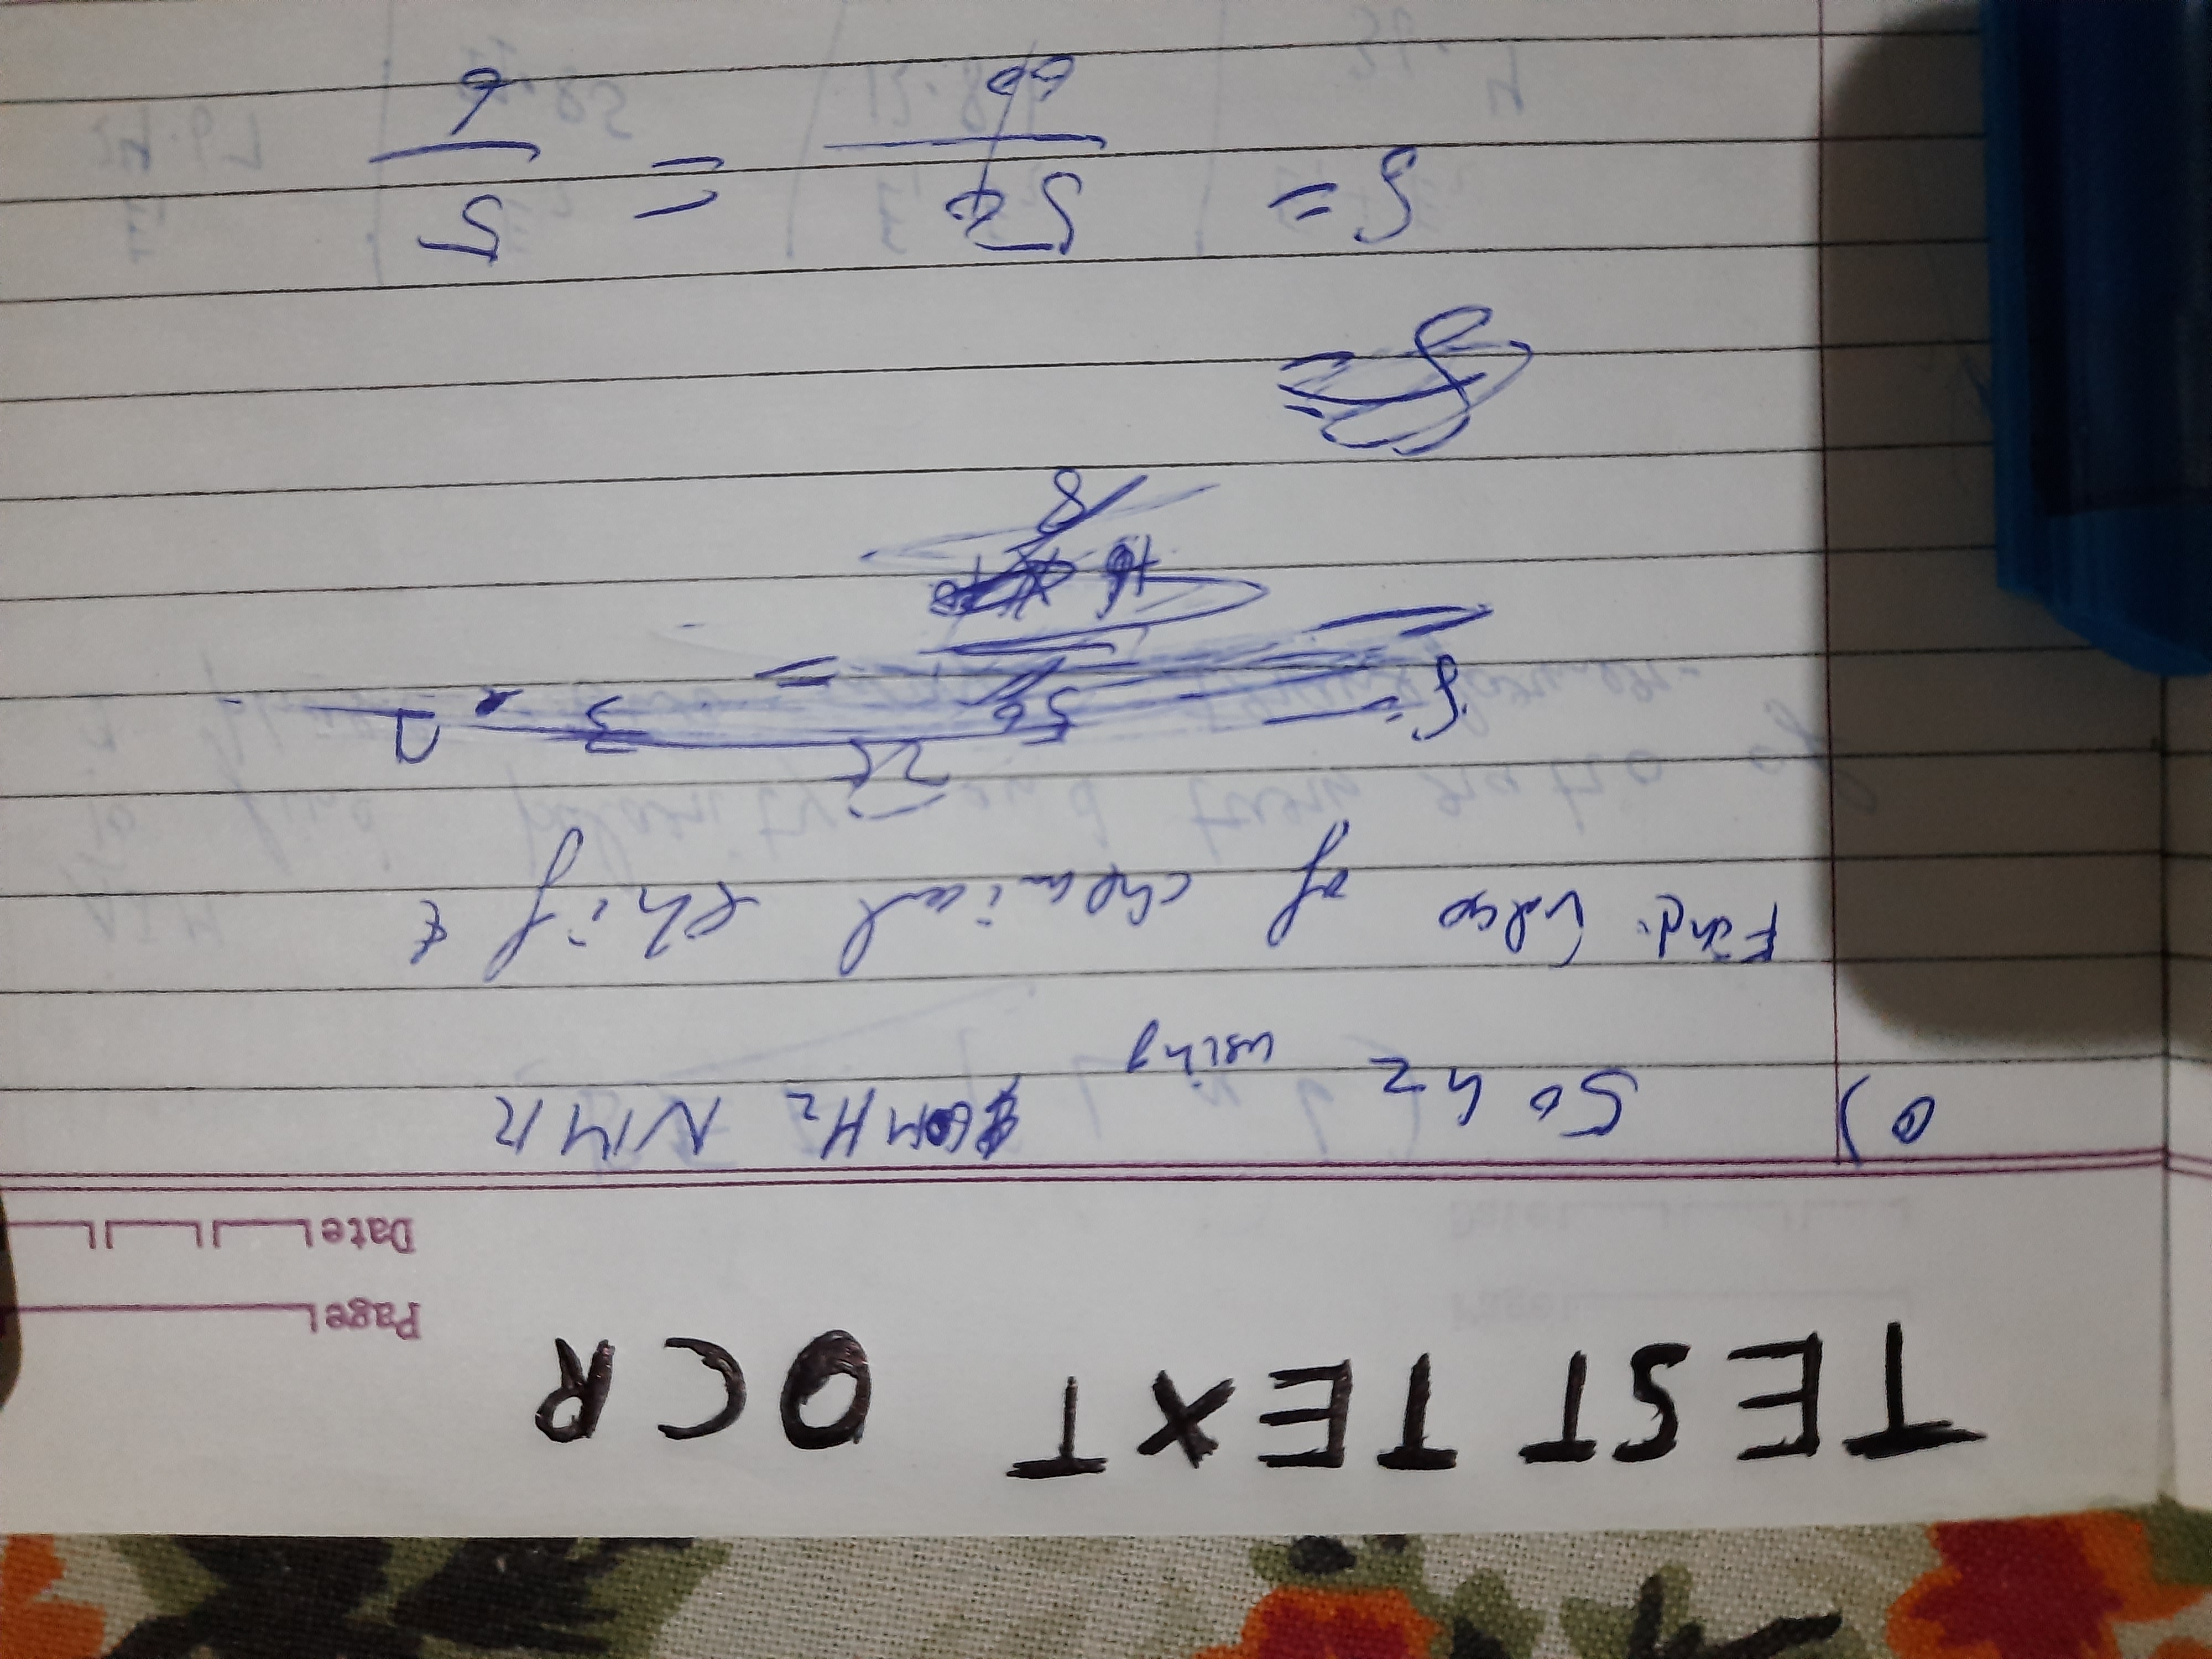 TEST TEXT OCR
Page
Date
Q) 50 hz using 60MHz NMR
Find value of chemical shift
δ = 50 =
8
δ = 50 = 5
60 6